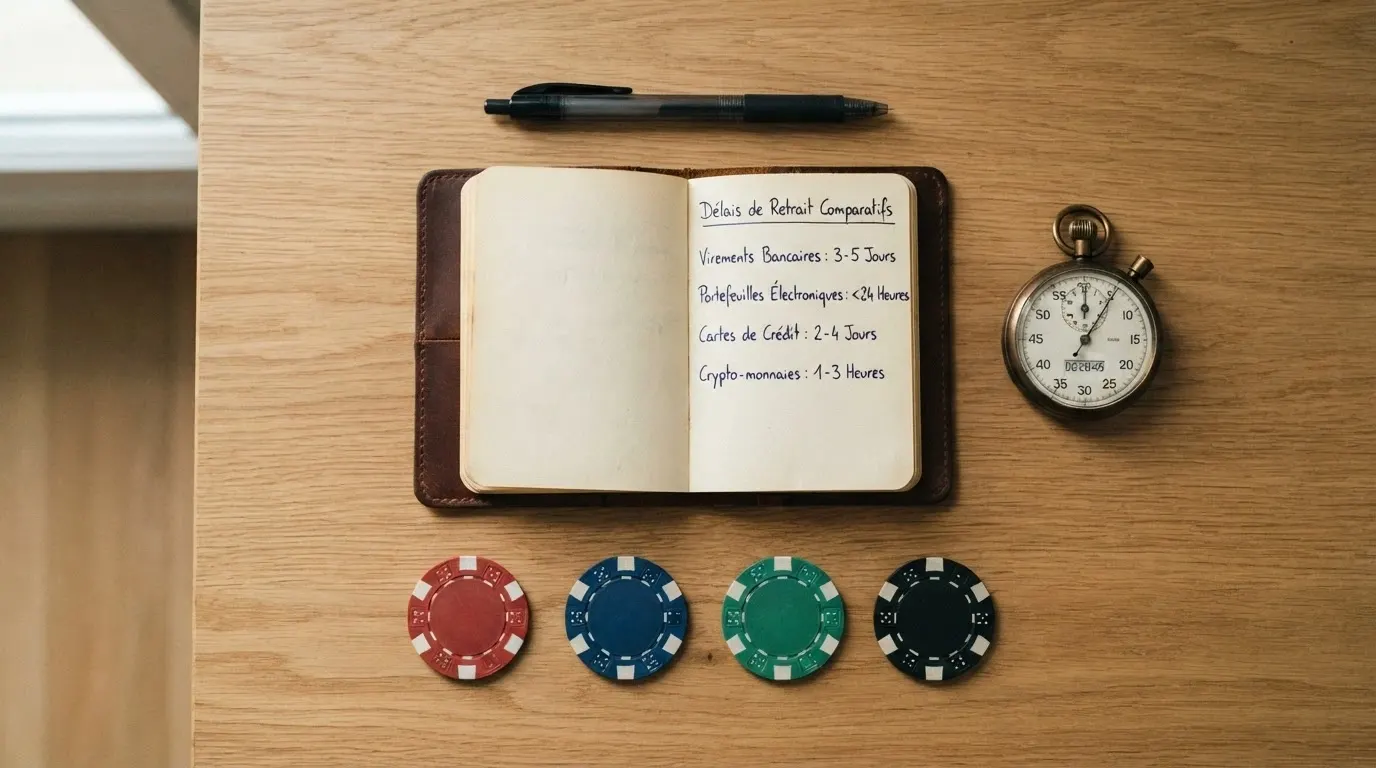 Délais de Retrait Comparatifs
Virements Bancaires : 3-5 Jours
Portefeuilles Électroniques : <24 Heures
Cartes de Crédit : 2-4 Jours
Crypto-monnaies : 1-3 Heures
55
5
50
10
45
15
40
20
35
25
30